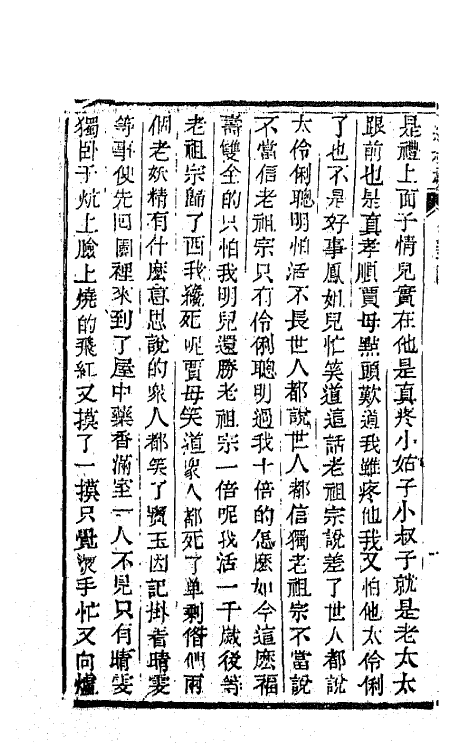 是禮上面子情兒實在他是真疼小姑子小叔子就是老太太
跟前也是真孝順賈母點頭歎道我雖疼他我又怕他太伶俐
了也不是好事鳳姐兒忙笑道這話老祖宗說差了世人都說
太伶俐聰明怕活不長世人都說世人都信獨老祖宗不當說
不當信老祖宗只有伶俐聰明過我十倍的怎麼如今這麼福
壽雙全的只怕我明兒還勝老祖宗一倍呢我活一千歲後等
老祖宗歸了西我纔死呢賈母笑道衆人都死了單剩偺們兩
個老妖精有什麼意思說的衆人都笑了寶玉因記掛着晴雯
等事便先回園裡來到了屋中藥香滿室一人不見只有晴雯
獨卧于炕上臉上燒的飛紅又摸了一摸只覺燙手忙又向爐